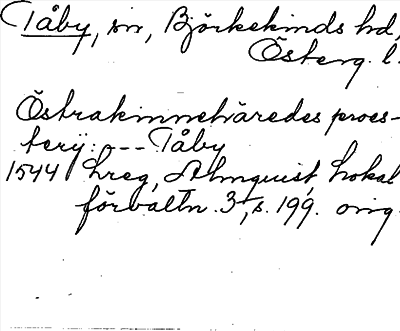 Tåby, sn, Björkekinds hd,
Österg. l.
Östrakinnehäredes proes-
terij: --- Tåby
1544 hreg, Almquist, Lokal
förvaltn. 3, s. 199. orig.